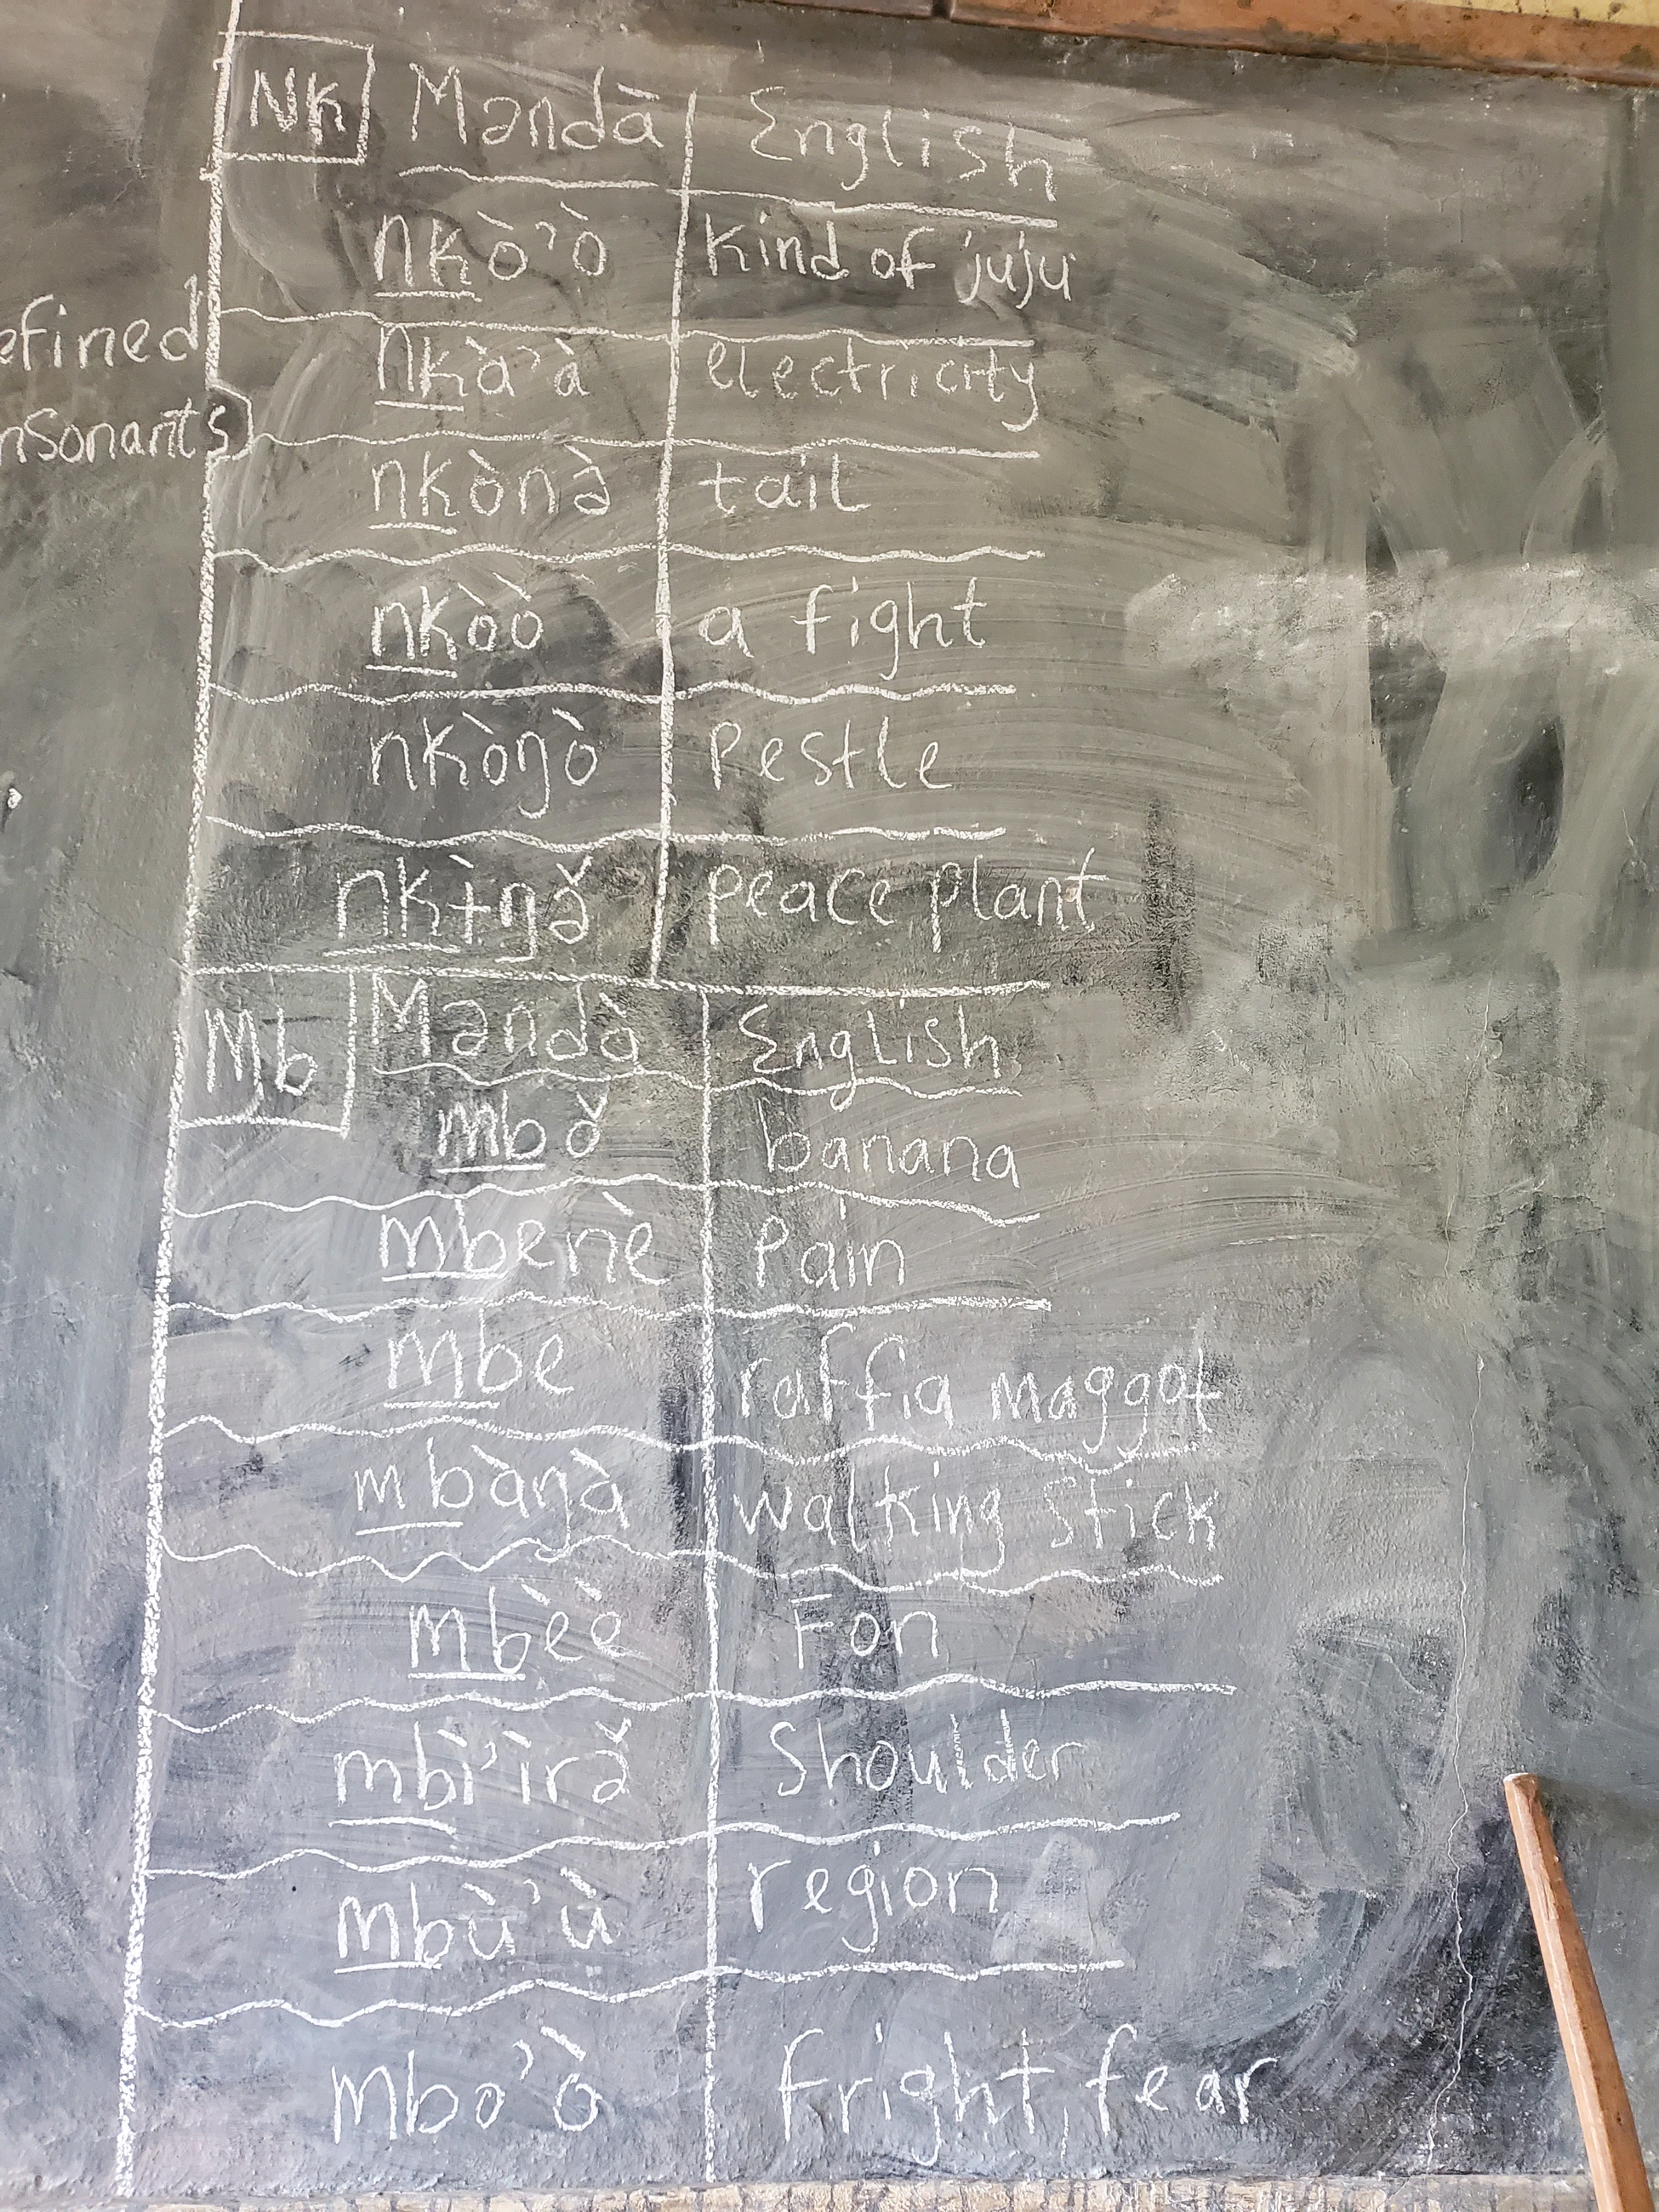 NK Məndā English
nkò'ò kind of juju
nkà'à electricity
nkònə̀ tail
nkòò a fight
nkòŋò Pestle
nkɨ̀ŋə̌ peace plant
Mb Məndà English
mbǒ banana
mbenè Pain
mbe raffia maggot
mbàŋà walking stick
mbèè Fon
mbì'ìrə̌ Shoulder
mbù'ù region
mbo'ò fright, fear